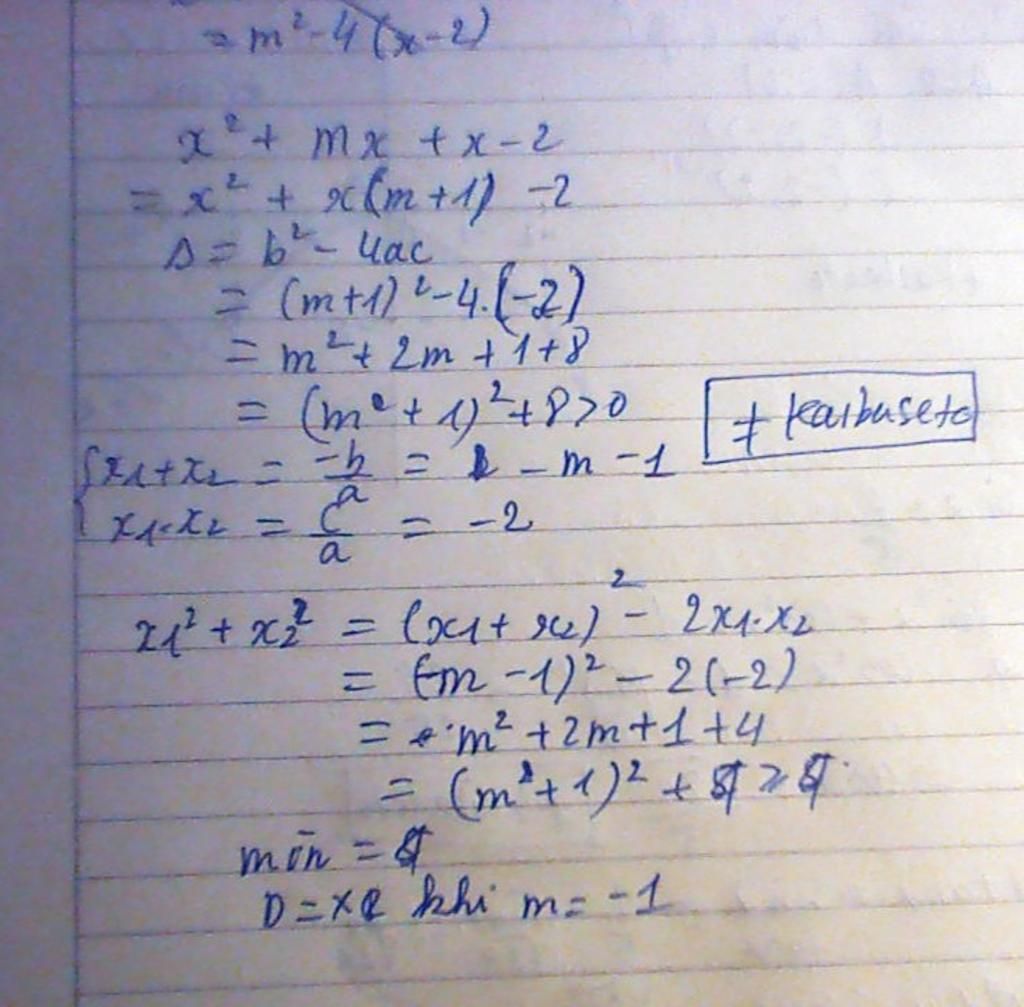 = m² - 4(x-2)
x² + mx + x - 2
= x² + x(m+1) - 2
Δ = b² - 4ac
= (m+1)² - 4.(-2)
= m² + 2m + 1 + 8
= (m + 1)² + 8 > 0
≠ kaibuseto
x1 + x2 = -b/a = - m - 1
x1.x2 = c/a = -2
x1² + x2² = (x1 + x2)² - 2x1.x2
= (-m - 1)² - 2(-2)
= m² + 2m + 1 + 4
= (m + 1)² + 4 ≥ 4
min = 4
khi m = -1